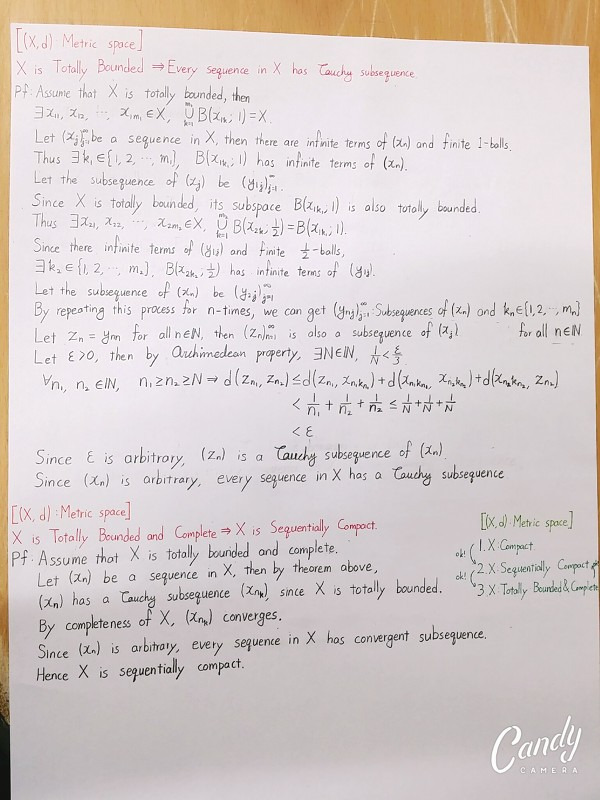 [(X, d) : Metric space]
X is Totally Bounded ⇒ Every sequence in X has Cauchy subsequence
Pf: Assume that X is totally bounded, then
∃x₁₁, x₁₂, ⋯, x₁ₘ₁ ∈ X, ⋃ₖ₌₁^m₁ B(x₁ₖ ; 1) = X.
Let (xⱼ)ⱼ₌₁^∞ be a sequence in X, then there are infinite terms of (xₙ) and finite 1-balls.
Thus ∃k₁∈{1, 2, ⋯, m₁}, B(x₁ₖ₁ ; 1) has infinite terms of (xₙ).
Let the subsequence of (xⱼ) be (y₁ⱼ)ⱼ₌₁^∞.
Since X is totally bounded, its subspace B(x₁ₖ₁ ; 1) is also totally bounded.
Thus ∃x₂₁, x₂₂, ⋯, x₂ₘ₂ ∈ X, ⋃ₖ₌₁^m₂ B(x₂ₖ ; 1/2) = B(x₁ₖ₁ ; 1).
Since there infinite terms of (y₁ⱼ) and finite 1/2-balls,
∃k₂∈{1, 2, ⋯, m₂}, B(x₂ₖ₂ ; 1/2) has infinite terms of (y₁ⱼ).
Let the subsequence of (xₙ) be (y₂ⱼ)ⱼ₌₁^∞
By repeating this process for n-times, we can get (yₙⱼ)ⱼ₌₁^∞ : Subsequences of (xₙ) and kₙ∈{1, 2, ⋯, mₙ}
Let zₙ = yₙₙ for all n∈ℕ, then (zₙ)ₙ₌₁^∞ is also a subsequence of (xⱼ). for all n∈ℕ
Let ε>0, then by Archimedean property, ∃N∈ℕ, 1/N < ε/3
∀n₁, n₂ ∈ℕ, n₁≥n₂≥N ⇒ d(z_n₁, z_n₂) ≤ d(z_n₁, x_n₁k_n₁) + d(x_n₁k_n₁, x_n₂k_n₂) + d(x_n₂k_n₂, z_n₂)
< 1/n₁ + 1/n₂ + 1/n₂ ≤ 1/N + 1/N + 1/N
< ε
Since ε is arbitrary, (zₙ) is a Cauchy subsequence of (xₙ).
Since (xₙ) is arbitrary, every sequence in X has a Cauchy subsequence
[(X, d) : Metric space]
X is Totally Bounded and Complete ⇒ X is Sequentially Compact.
Pf: Assume that X is totally bounded and complete.
Let (xₙ) be a sequence in X, then by theorem above,
(xₙ) has a Cauchy subsequence (xₙₖ), since X is totally bounded.
By completeness of X, (xₙₖ) converges.
Since (xₙ) is arbitrary, every sequence in X has convergent subsequence.
Hence X is sequentially compact.
[(X, d) : Metric space]
1. X : Compact.
ok!
2. X : Sequentially Compact
ok!
3. X : Totally Bounded & Complete
Candy
CAMERA